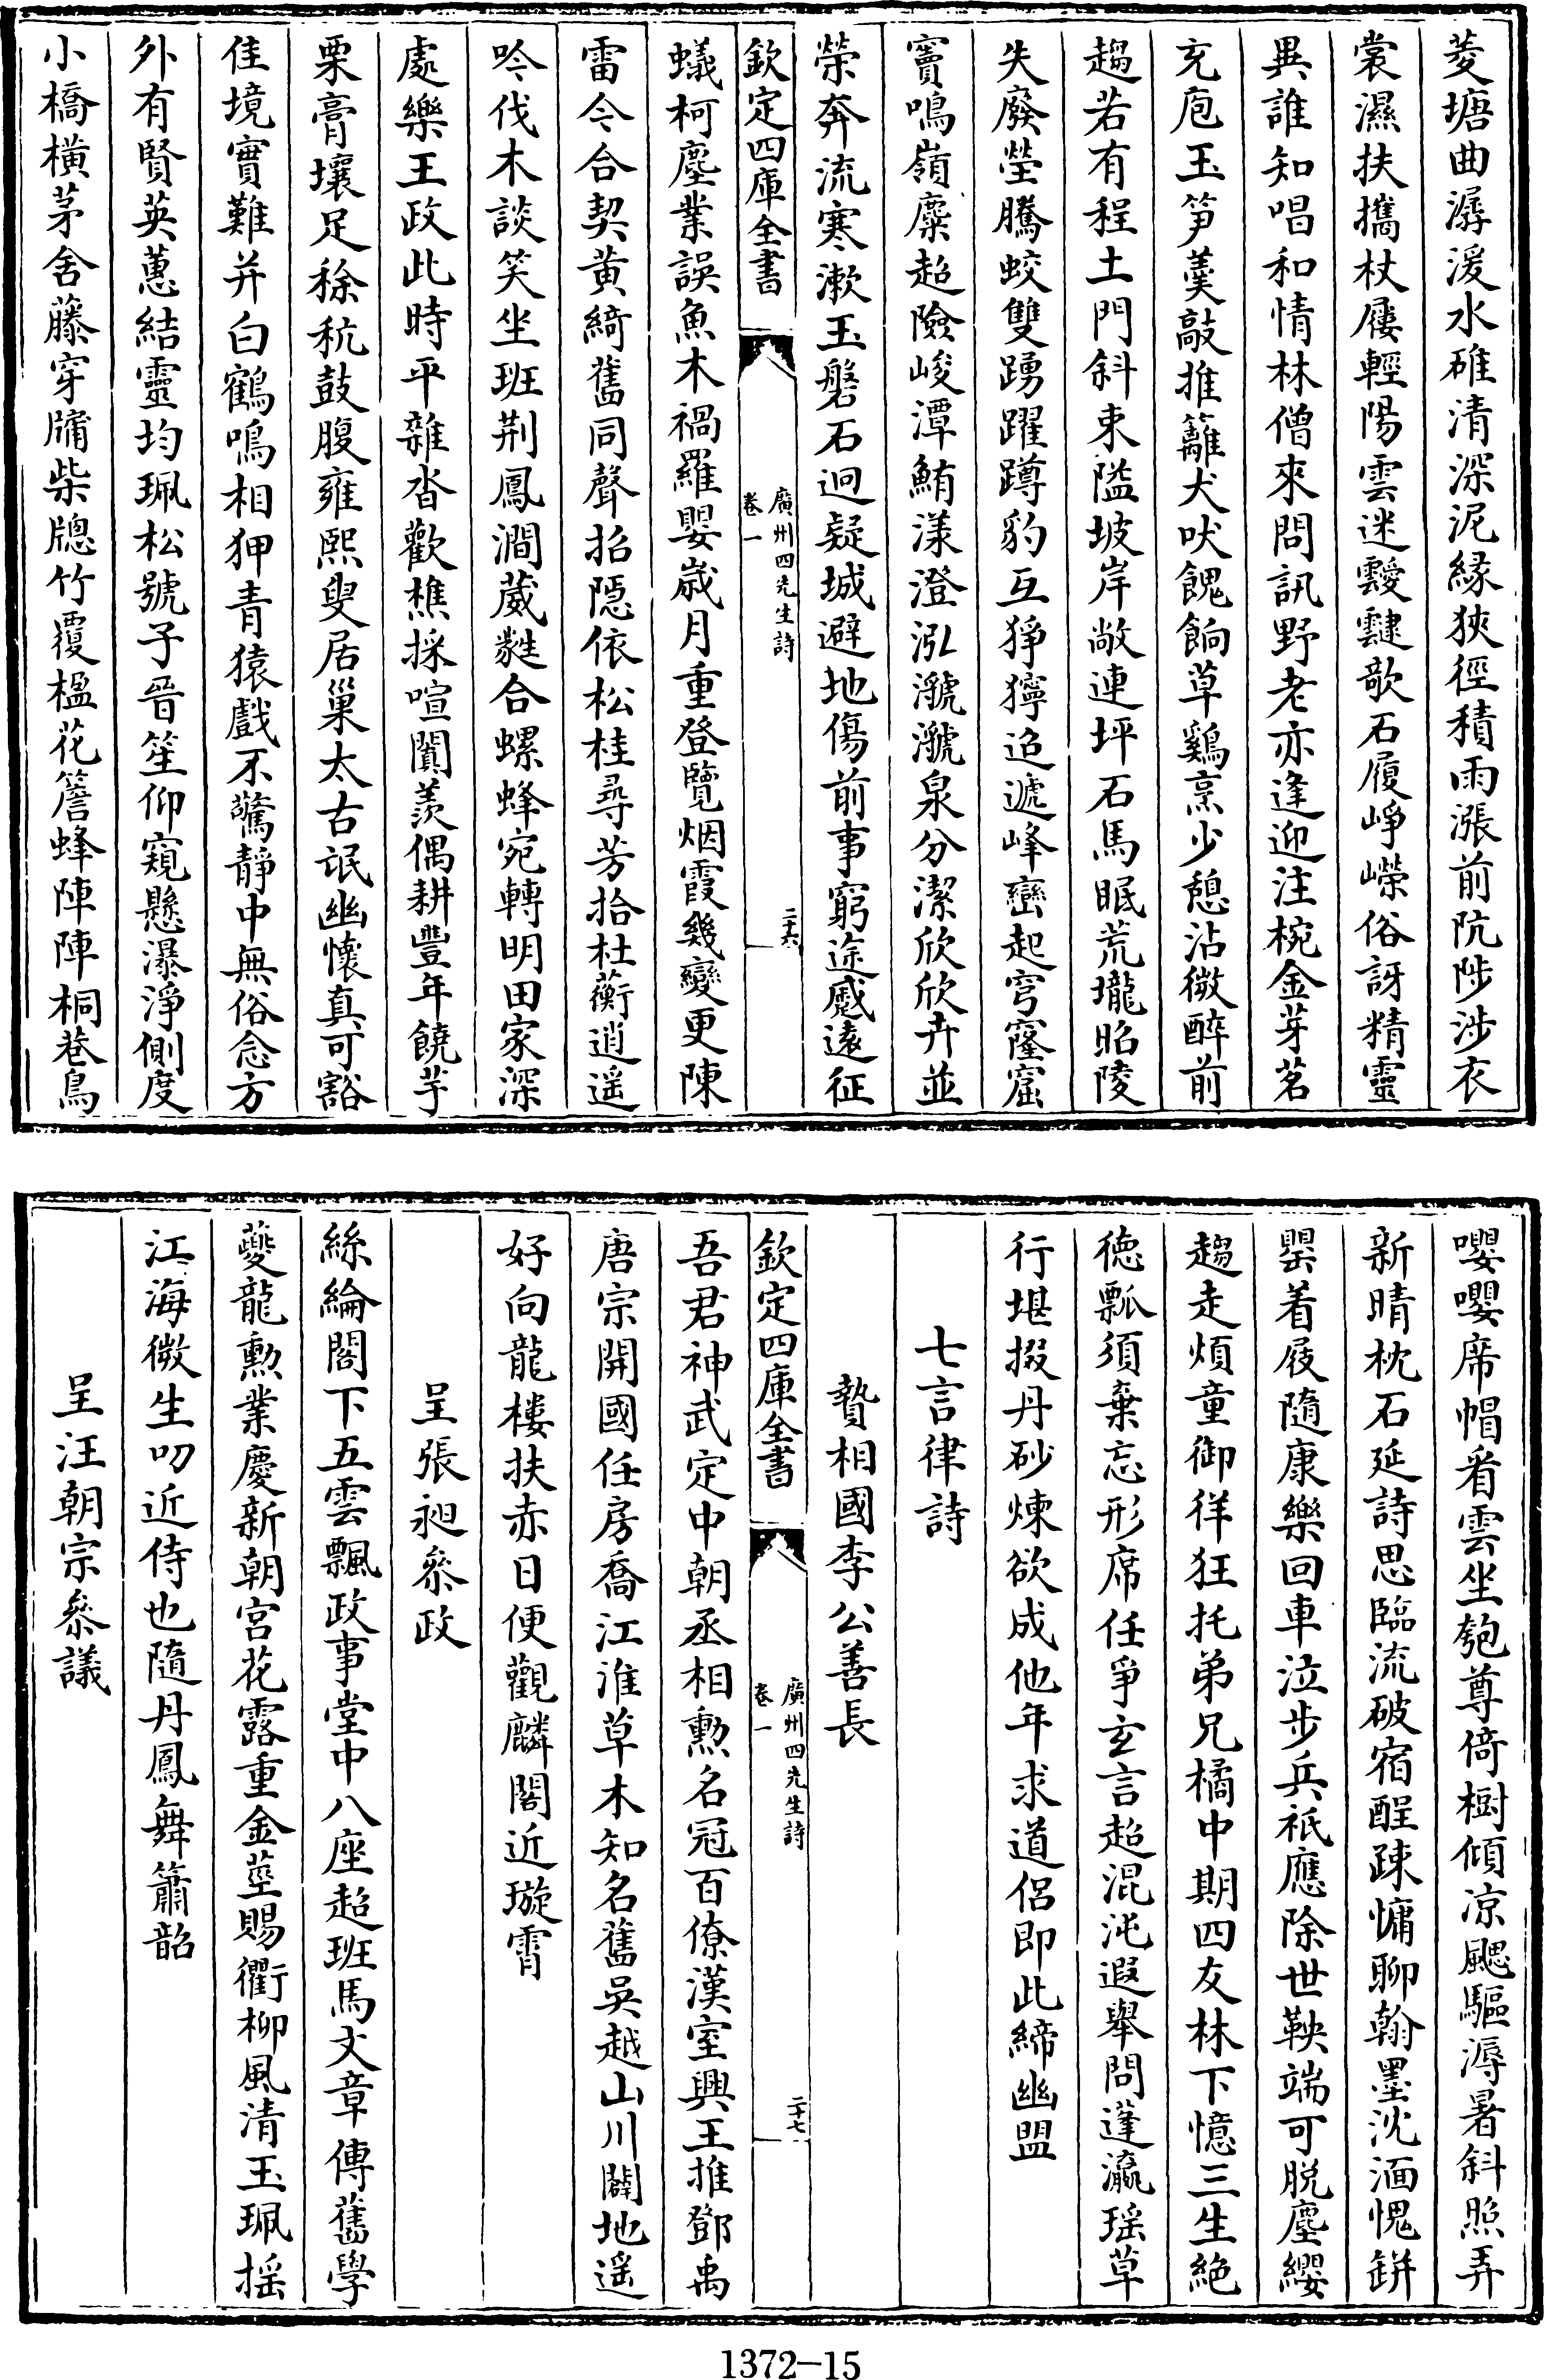 菱塘曲潺湲水碓清深泥緣狹徑積雨漲前阬陟涉衣
裳濕扶攜杖屨輕陽雲迷靉靆歌石履崢嶸俗訝精靈
異誰知唱和情林僧來問訊野老亦逢迎注椀金芽茗
充庖玉笋羹敲推籬犬吠餽餉草鷄烹少憩沾微醉前
趨若有程土門斜束隘坡岸敞連坪石馬眠荒壠昭陵
失廢塋騰蛟雙踴躍蹲豹互猙獰迢遞峰巒起穹窿窟
竇鳴嶺麋超險峻潭鮪漾澄泓㶁㶁泉分潔欣欣卉並
榮奔流寒漱玉磐石迥疑城避地傷前事窮途慼遠征
欽定四庫全書
廣州四先生詩
卷一
二十六
蟻柯塵業誤魚木禍羅嬰歲月重登覽烟霞幾變更陳
雷令合契黄綺舊同聲招隱依松桂尋芳拾杜蘅逍遥
吟伐木談笑坐班荆鳳澗葳蕤合螺蜂宛轉明田家深
處樂王政此時平雜沓歡樵採喧闐羡偶耕豐年饒芋
栗膏壤足稌秔鼓腹雍熙叟居巢太古氓幽懷真可豁
佳境實難并白鶴鳴相狎青猿戲不驚靜中無俗念方
外有賢英蕙結靈均珮松號子晉笙仰窺懸瀑淨側度
小橋橫茅舍藤穿牖柴牕竹覆楹花簷蜂陣陣桐巷鳥
嚶嚶席帽看雲坐匏尊倚樹傾凉颸驅溽暑斜照弄
新晴枕石延詩思臨流破宿酲疎慵聊翰墨沈湎愧缾
罌着屐隨康樂回車泣步兵祇應除世鞅端可脱塵纓
趨走煩童御徉狂托弟兄橘中期四友林下憶三生絶
德瓢須棄忘形席任爭玄言超混沌遐舉問蓬瀛瑶草
行堪掇丹砂煉欲成他年求道侣即此締幽盟
七言律詩
贄相國李公善長
欽定四庫全書
廣州四先生詩
卷一
二十七
吾君神武定中朝丞相勲名冠百僚漢室興王推鄧禹
唐宗開國任房喬江淮草木知名舊吳越山川闢地遥
好向龍樓扶赤日便觀麟閣近璇霄
呈張昶叅政
絲綸閣下五雲飄政事堂中八座超班馬文章傳舊學
夔龍勲業慶新朝宮花露重金莖賜衢柳風清玉珮揺
江海微生叨近侍也隨丹鳳舞簫韶
呈汪朝宗叅議
1372—15